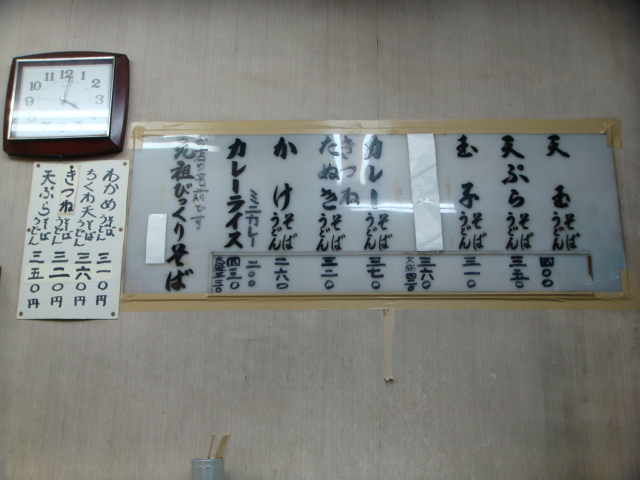 天玉 そば うどん 四〇〇
天ぷら そば うどん 三五〇
玉子 そば うどん 三一〇
三六〇
カレー そば うどん 三七〇
きつね
たぬき そば うどん 三二〇
かけ そば うどん 二六〇
ミニカレー 二〇〇
カレーライス 四三〇
お店の名前です
元祖びっくりそば
わかめ そば うどん 三一〇円
ちくわ天 そば うどん 三六〇円
きつね そば うどん 三二〇円
天ぷら そば うどん 三五〇円
12
11
1
10
2
9
3
8
4
7
5
6